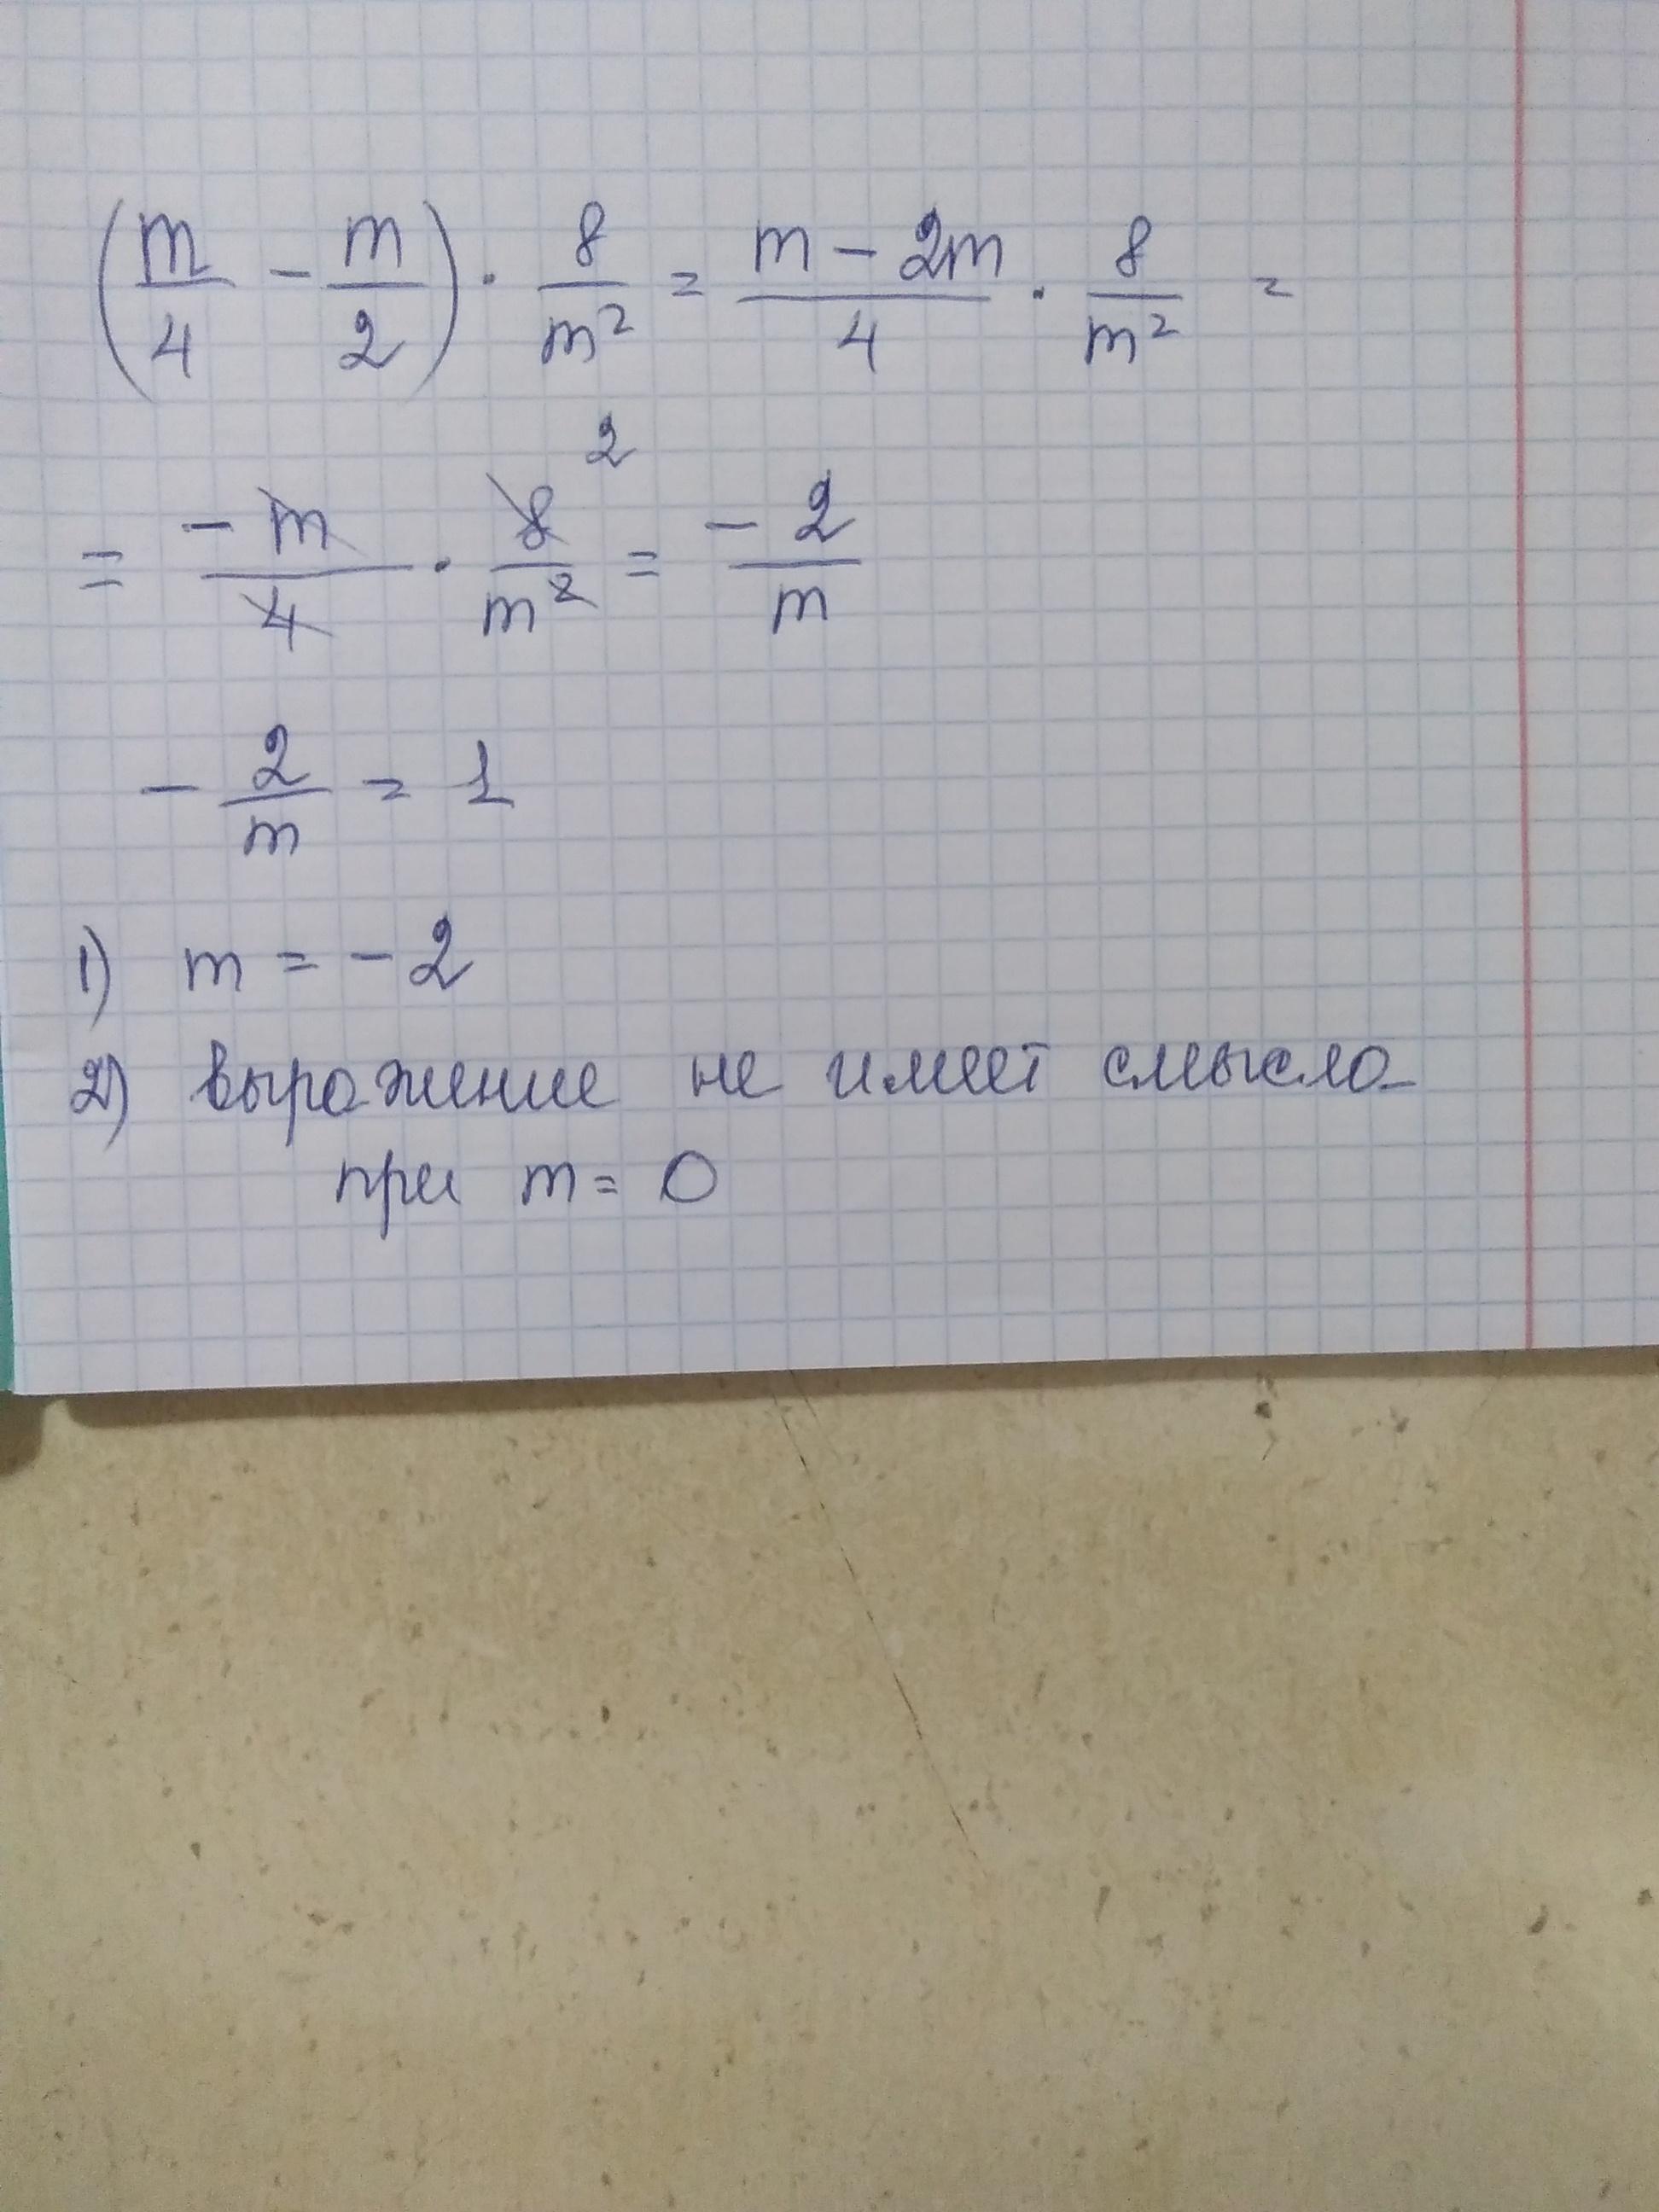 (m/4 - m/2) · 8/m² = (m - 2m)/4 · 8/m² =
= -m/4 · 8/m² 2 = -2/m
- 2/m = 1
1) m = -2
2) выражение не имеет смысла
при m = 0